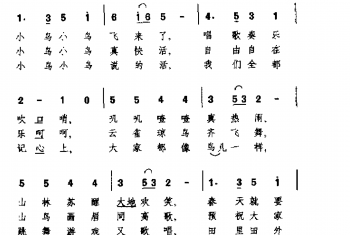 1· 3 5 1 | 7 6 1 6 5 - | 4· 5 3 1
小鸟小鸟 飞来了， 唱歌奏乐
小鸟小鸟 真快活， 自由自在
小鸟小鸟 说的话， 我们全都
2 - 1 0 | 5 5 4 4 | 3 5 3 2 -
吹口哨， 叽叽喳喳 真热闹，
乐呵呵， 云雀琼鸟 齐飞舞，
记心上， 大家都像 鸟儿一样，
5 5 4 4 | 3 5 3 2 - | 1· 3 5 1
山林苏醒 大地欢笑， 春天就要
山鸟画眉 同高歌， 预祝大家
跳舞游戏 又歌唱， 田里田外